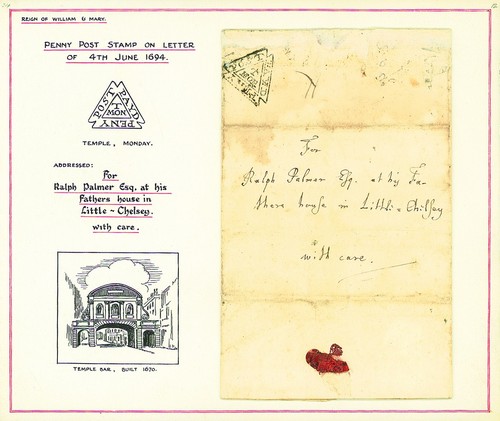 REIGN OF WILLIAM & MARY.
PENNY POST STAMP ON LETTER
OF 4TH JUNE 1694.
PENY POST PAYD
T
MON
TEMPLE, MONDAY.
ADDRESSED:
For
Ralph Palmer Esq. at his
Fathers house in
Little - Chelsey.
with care.
TEMPLE BAR, BUILT 1670.
PENY POST PAYD
T
MON
For
Ralph Palmer Esq. at his Fa-
thers house in Little-Chelsey
with care.